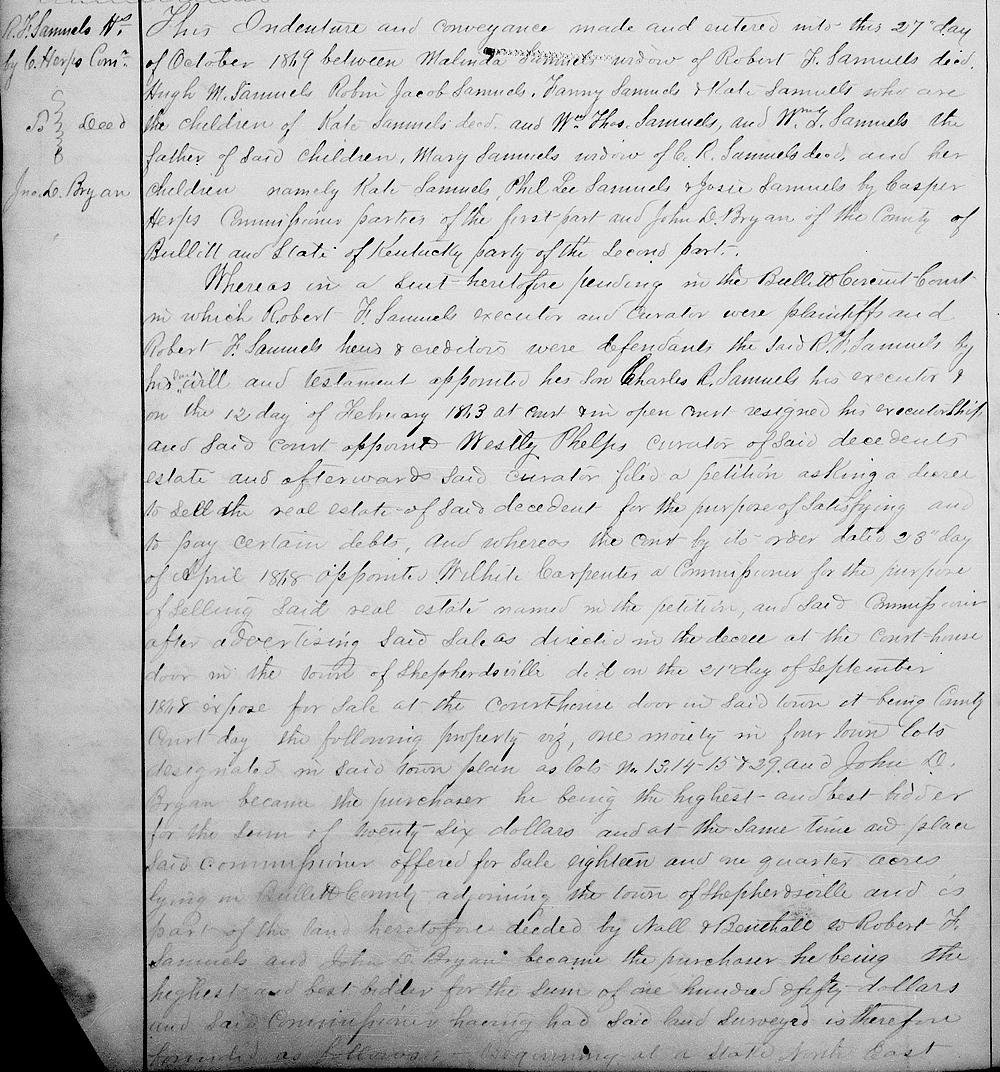 R. F. Samuels Hrs
by C. Herps Comr
To } Deed
Jno. D. Bryan
This Indenture and conveyance made and entered into this 27" day
of October 1869 between Malinda Samuels widow of Robert F. Samuels decd.
Hugh M. Samuels Robin Jacob Samuels, Fanny Samuels & Kate Samuels who are
the children of Kate Samuels decd. and Wm Thos. Samuels, and Wm T. Samuels the
father of said children, Mary Samuels widow of C. R. Samuels decd. and her
children namely Kate Samuels, Phil Lee Samuels & Josie Samuels by Casper
Herps Commissioner parties of the first part and John D. Bryan of the County of
Bullitt and State of Kentucky party of the Second part.
Whereas in a suit heretofore pending in the Bullitt Circuit Court
in which Robert F. Samuels executor and Curator were plaintiffs and
Robert F. Samuels heirs & creditors were defendants the said R. F. Samuels by
his last will and testament appointed his Son Charles R. Samuels his executor &
on the 12 day of February 1863 at court & in open court resigned his executorship
and said court appoint Westly Phelps curator of said decedents
estate and afterwards said curator filed a petition asking a decree
to sell the real estate of said decedent for the purpose of satisfying and
to pay certain debts, and whereas the court by its order dated 23" day
of April 1868 appointed Wilhite Carpenter a Commissioner for the purpose
of selling said real estate named in the petition, and said Commissioner
after advertising said sale as directed in the decree at the Court house
door in the town of Shepherdsville did on the 21" day of September
1868 expose for sale at the courthouse door in said town it being County
Court day the following property viz, one moiety in four town lots
designated in said town plan as lots No. 13, 14 - 15 & 29. and John D.
Bryan became the purchaser he being the highest and best bidder
for the sum of twenty six dollars and at the same time and place
said commissioner offered for sale eighteen and one quarter acres
lying in Bullitt County adjoining the town of Shepherdsville and is
part of the land heretofore deeded by Nall & Benthall to Robert F.
Samuels and John D. Bryan became the purchaser he being the
highest and best bidder for the sum of one hundred & fifty dollars
and said Commissioner having had said land surveyed is therefore
bounded as follows, - Beginning at a stake North East